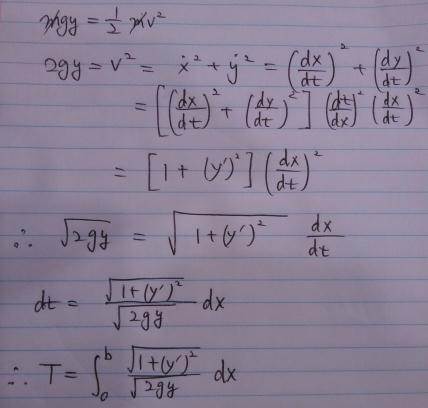 mgy = 1/2 mv²
2gy = v² = ẋ² + ẏ² = (dx/dt)² + (dy/dt)²
= [(dx/dt)² + (dy/dt)²] (dt/dx)² (dx/dt)²
= [1 + (y')²] (dx/dt)²
∴ √(2gy) = √(1+(y')²) dx/dt
dt = √(1+(y')²)/√(2gy) dx
∴ T = ∫₀ᵇ √(1+(y')²)/√(2gy) dx